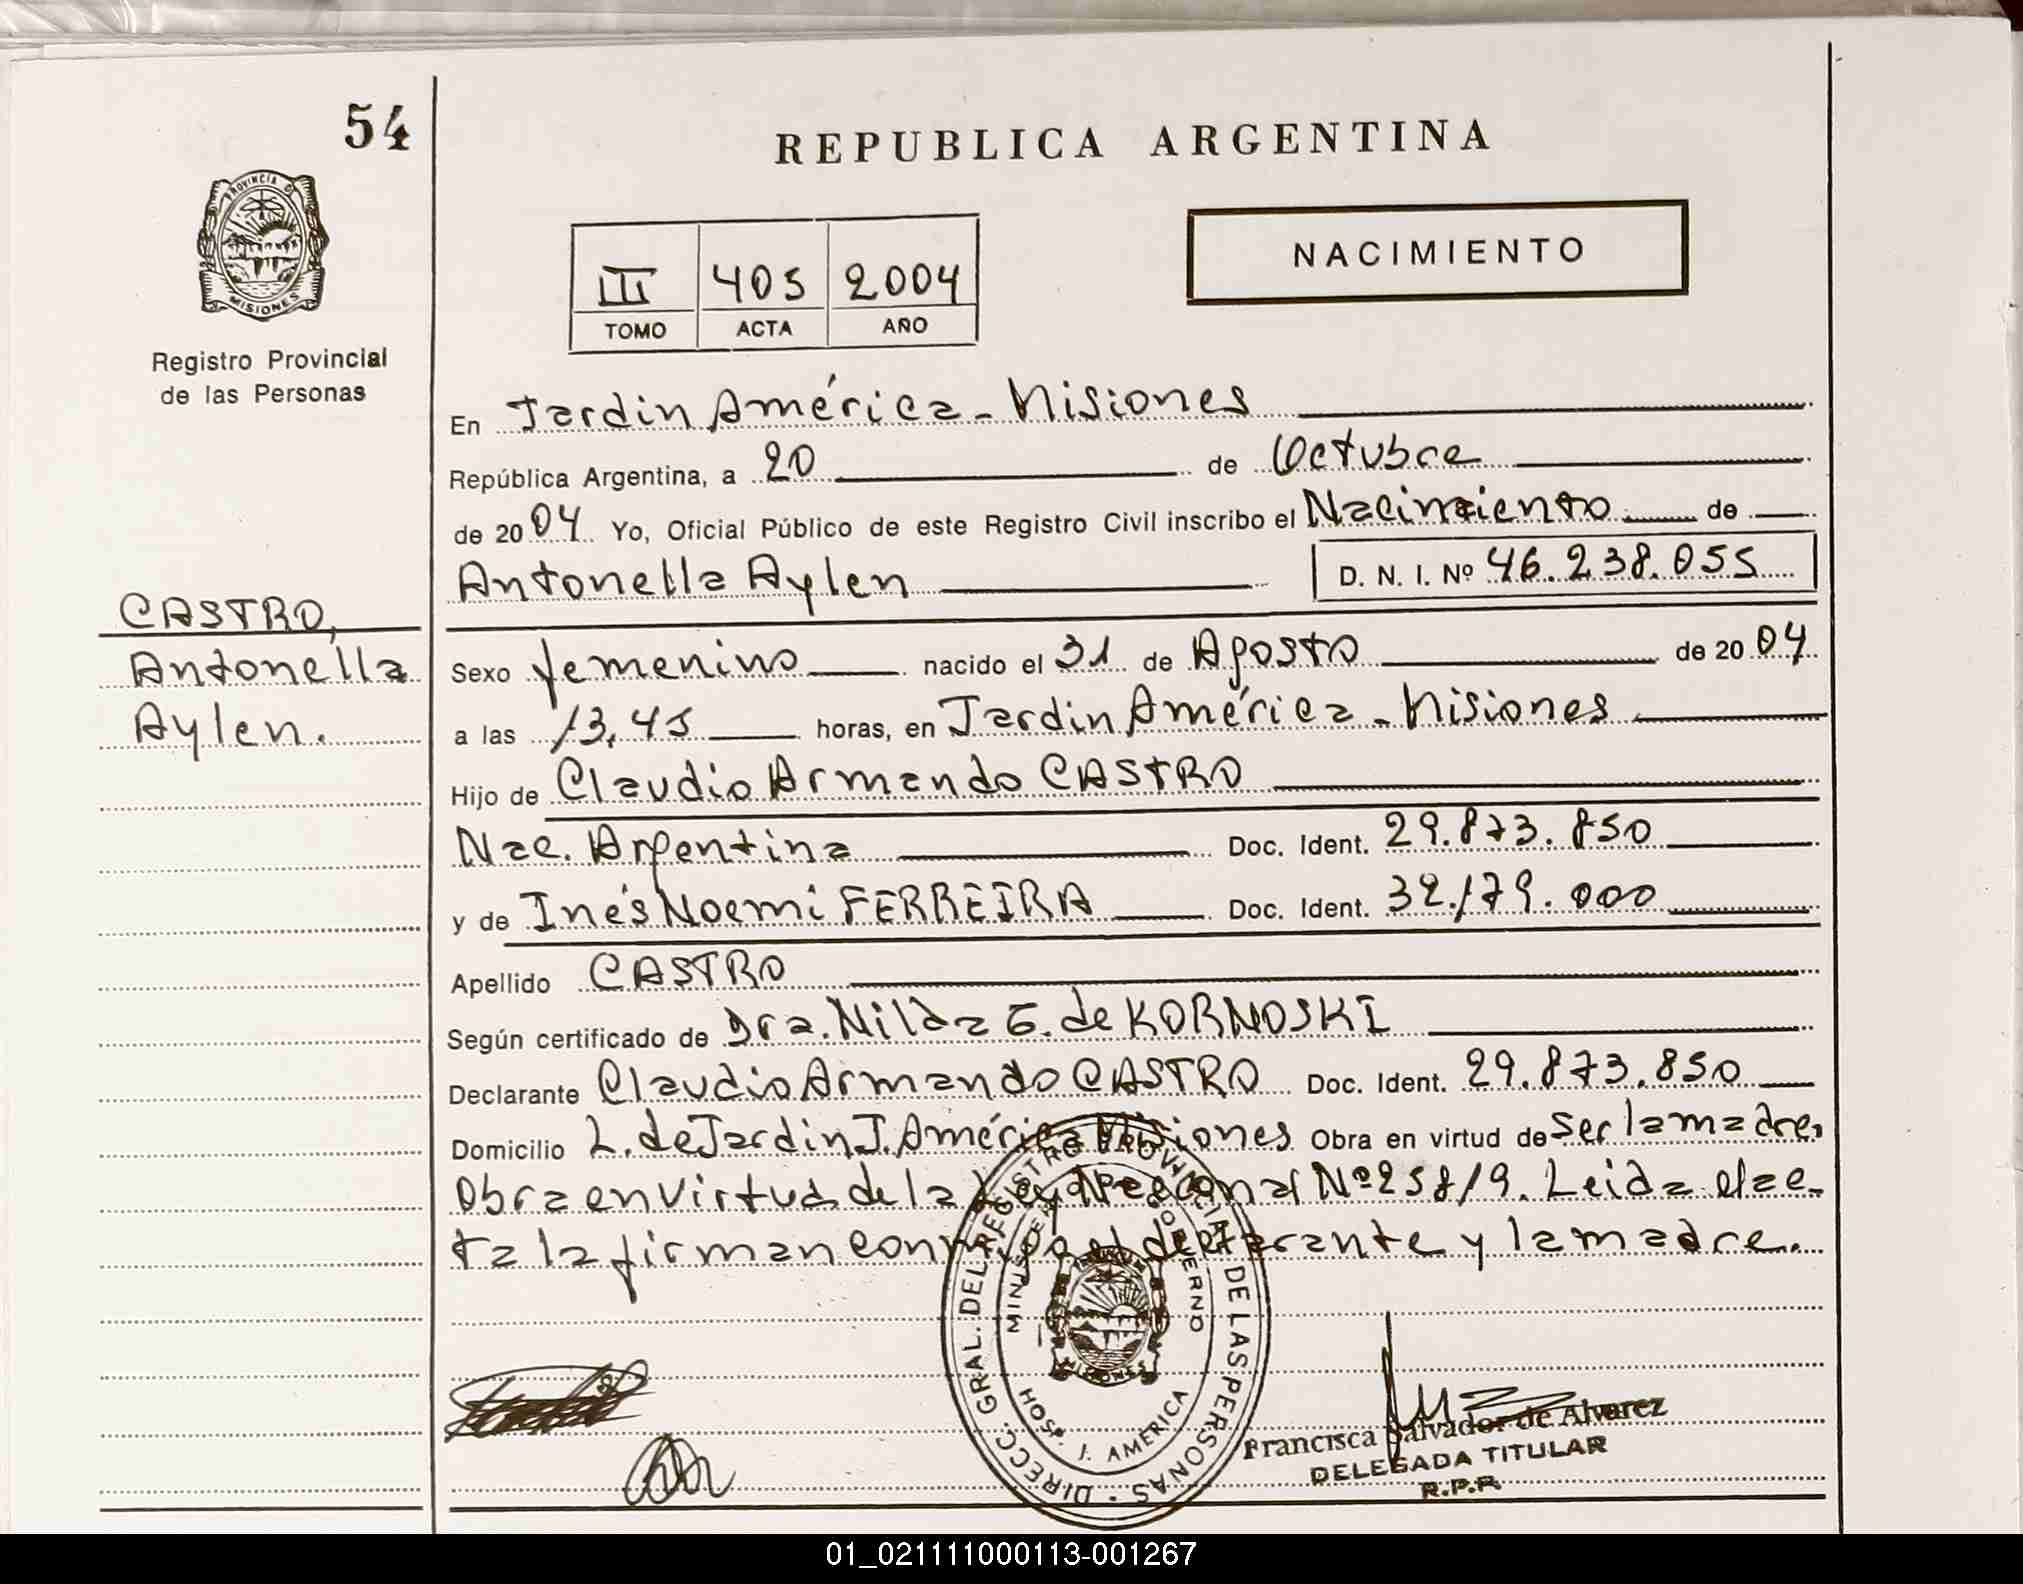 54
REPUBLICA ARGENTINA
PROVINCIA D
MISIONES
NACIMIENTO
III 405 2004
TOMO ACTA AÑO
Registro Provincial
de las Personas
En Jardin América - Misiones
República Argentina, a 20 de Octubre
de 2004 Yo, Oficial Público de este Registro Civil inscribo el Nacimiento de
Antonella Aylen D. N. I. Nº 46.238.055
CASTRO,
Antonella
Aylen.
Sexo femenino nacido el 31 de Agosto de 2004
a las 13,45 horas, en Jardin América - Misiones
Hijo de Claudio Armando CASTRO
Nac. Argentina Doc. Ident. 29.873.850
y de Inés Noemi FERREIRA Doc. Ident. 32.179.000
Apellido CASTRO
Según certificado de Dra. Nilda E. de KORNOSKI
Declarante Claudio Armando CASTRO Doc. Ident. 29.873.850
Domicilio L. de Jardin J. América Misiones Obra en virtud de ser la madre.
Obra en virtud de la Nº 258/9. Leida el ac-
ta la firman conmigo el declarante y la madre.
DIRECC. GRAL. DEL REGISTRO PROVINCIAL DE LAS PERSONAS
MINISTERIO GOBIERNO
MISIONES
HOSP. J. AMERICA
Francisca Salvador de Alvarez
DELEGADA TITULAR
R.P.P.
01_021111000113-001267